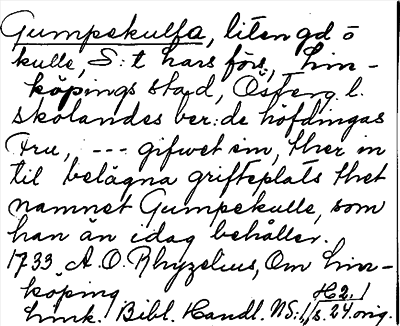 Gumpekulla, liten gd ö
kulle, S:t Lars förs, Lin-
köpings stad, Österg. l.
skölandes ber:de höfdingas
Fru, --- gifwet sin, ther in
til belägna grifteplats thet
namnet Gumpekulle, som
han än idag behåller.
1733 A. O. Rhyzelius, Om Lin-
köping H2.1
Link. Bibl. Handl. NS:1, s. 24 orig.